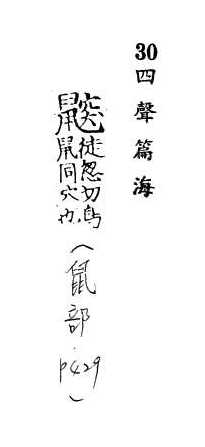 30四聲篇海
鼵徒忽切鳥鼠同穴也(鼠部.p429)